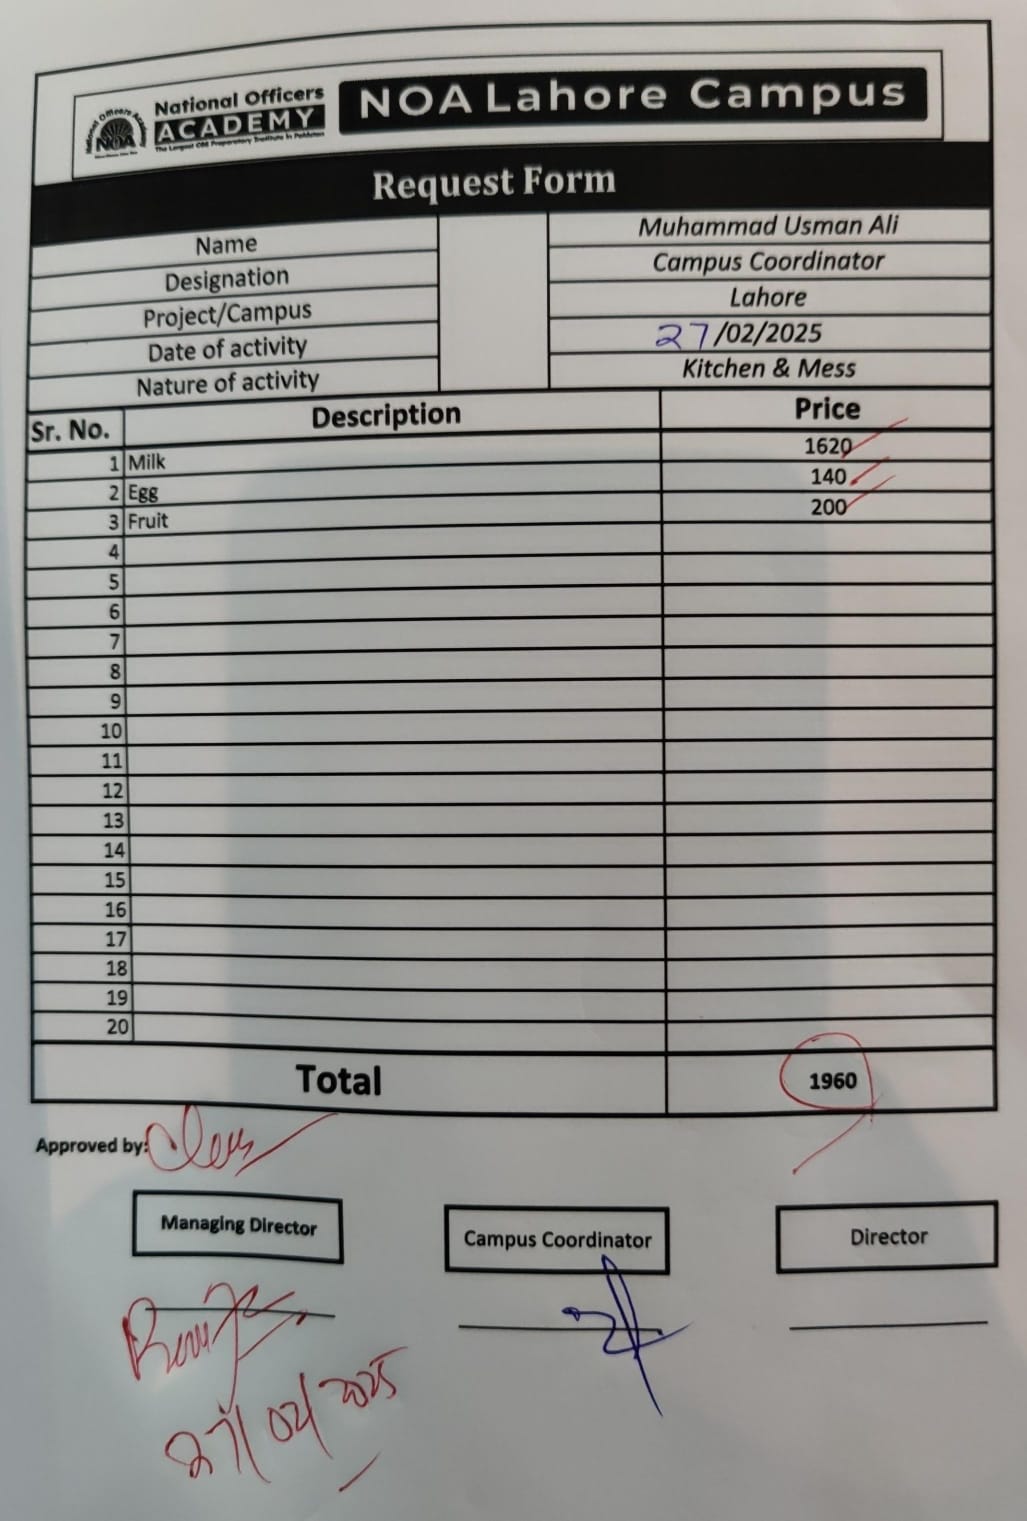 National Officers
ACADEMY
The Largest CSS Preparatory Institute in Pakistan
National Officers Academy
NOA
NOA Lahore Campus
Request Form
Name Muhammad Usman Ali
Designation Campus Coordinator
Project/Campus Lahore
Date of activity 27/02/2025
Nature of activity Kitchen & Mess
Sr. No. Description Price
1 Milk 1620
2 Egg 140
3 Fruit 200
4
5
6
7
8
9
10
11
12
13
14
15
16
17
18
19
20
Total 1960
Approved by:
Managing Director Campus Coordinator Director
27/02/2025